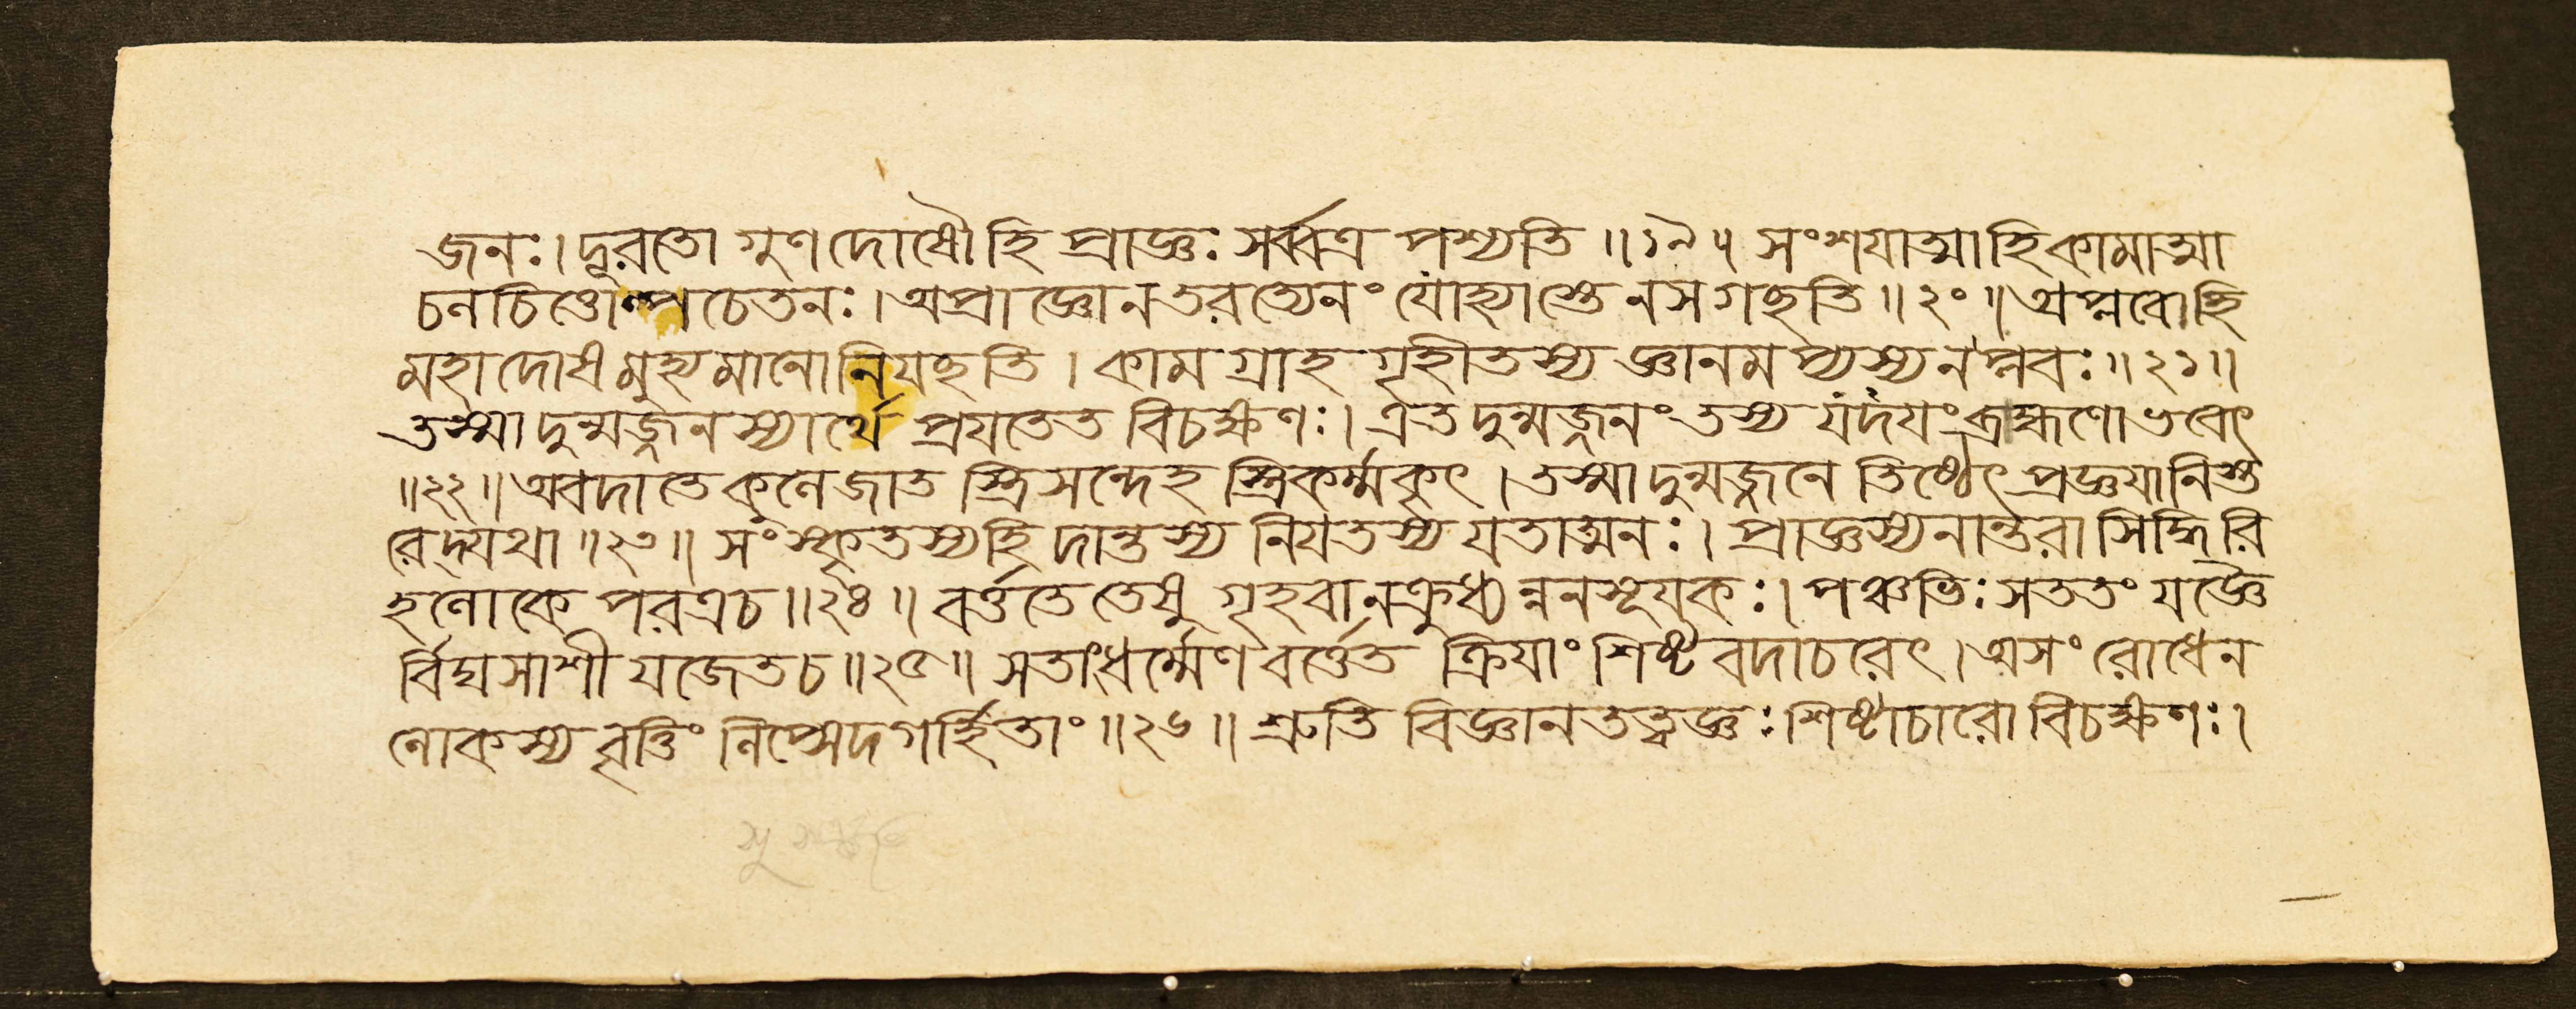 জনঃ। দূরতো গুণদোষৌ হি প্রাজ্ঞঃ সর্ব্বত্র পশ্যতি ॥১৯॥ সংশযাত্মা হি কামাত্মা
চলচিত্তোল্পচেতনঃ। অপ্রাজ্ঞো ন তরত্যেনং যোহ্যাস্তে ন স গচ্ছতি ॥২০॥ অপ্লবো হি
মহাদোষ মুহ্যমানো নিযচ্ছতি। কামগ্রাহগৃহীতস্য জ্ঞানমপ্যস্য ন প্লবঃ ॥২১॥
তস্মাদুন্মজ্জনস্যার্থে প্রযতেত বিচক্ষণঃ। এতদুন্মজ্জনং তস্য যদযং ব্রাহ্মণো ভবেৎ
॥২২॥ অবদাতে কুলে জাত স্ত্রিসন্দেহ স্ত্রিকর্ম্মকৃৎ। তস্মাদুন্মজ্জনে তিষ্ঠেৎ প্রজ্ঞযা নিস্ত
রেদ্যথা ॥২৩॥ সংস্কৃতস্য হি দান্তস্য নিযতস্য যতাত্মনঃ। প্রাজ্ঞস্যনান্তরা সিদ্ধিরি
হলোকে পরত্র চ ॥২৪॥ বর্ত্ততে তেষু গৃহবানক্রুধ্যন্ননসূযকঃ। পঞ্চভিঃ সততং যজ্ঞৈ
র্বিঘসাশী যজেত চ ॥২৫॥ সতাং ধর্ম্মেণ বর্ত্তেত ক্রিযাং শিষ্টবদাচরেৎ। অসংরোধেন
লোকস্য বৃত্তিং লিপ্সেদগর্হিতাং ॥২৬॥ শ্রুতিবিজ্ঞানতত্ত্বজ্ঞঃ শিষ্টাচারো বিচক্ষণঃ।